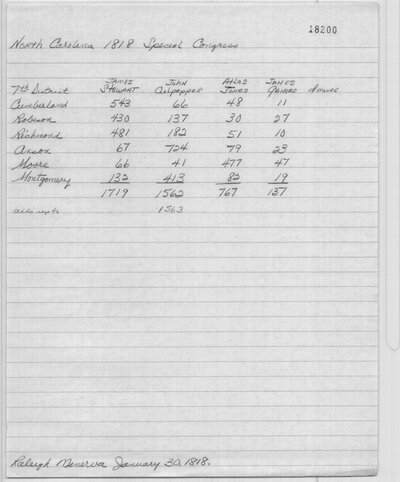 18200
North Carolina 1818 Special Congress
7th District James Stewart John Culpepper Atlas Jones James Gaines
Cumberland 543 66 48 11
Robeson 430 137 30 27
Richmond 481 182 51 10
Anson 67 724 79 23
Moore 66 41 477 47
Montgomery 132 413 82 19
1719 1562 767 137
adds up to 1563
Raleigh Minerva January 30, 1818.